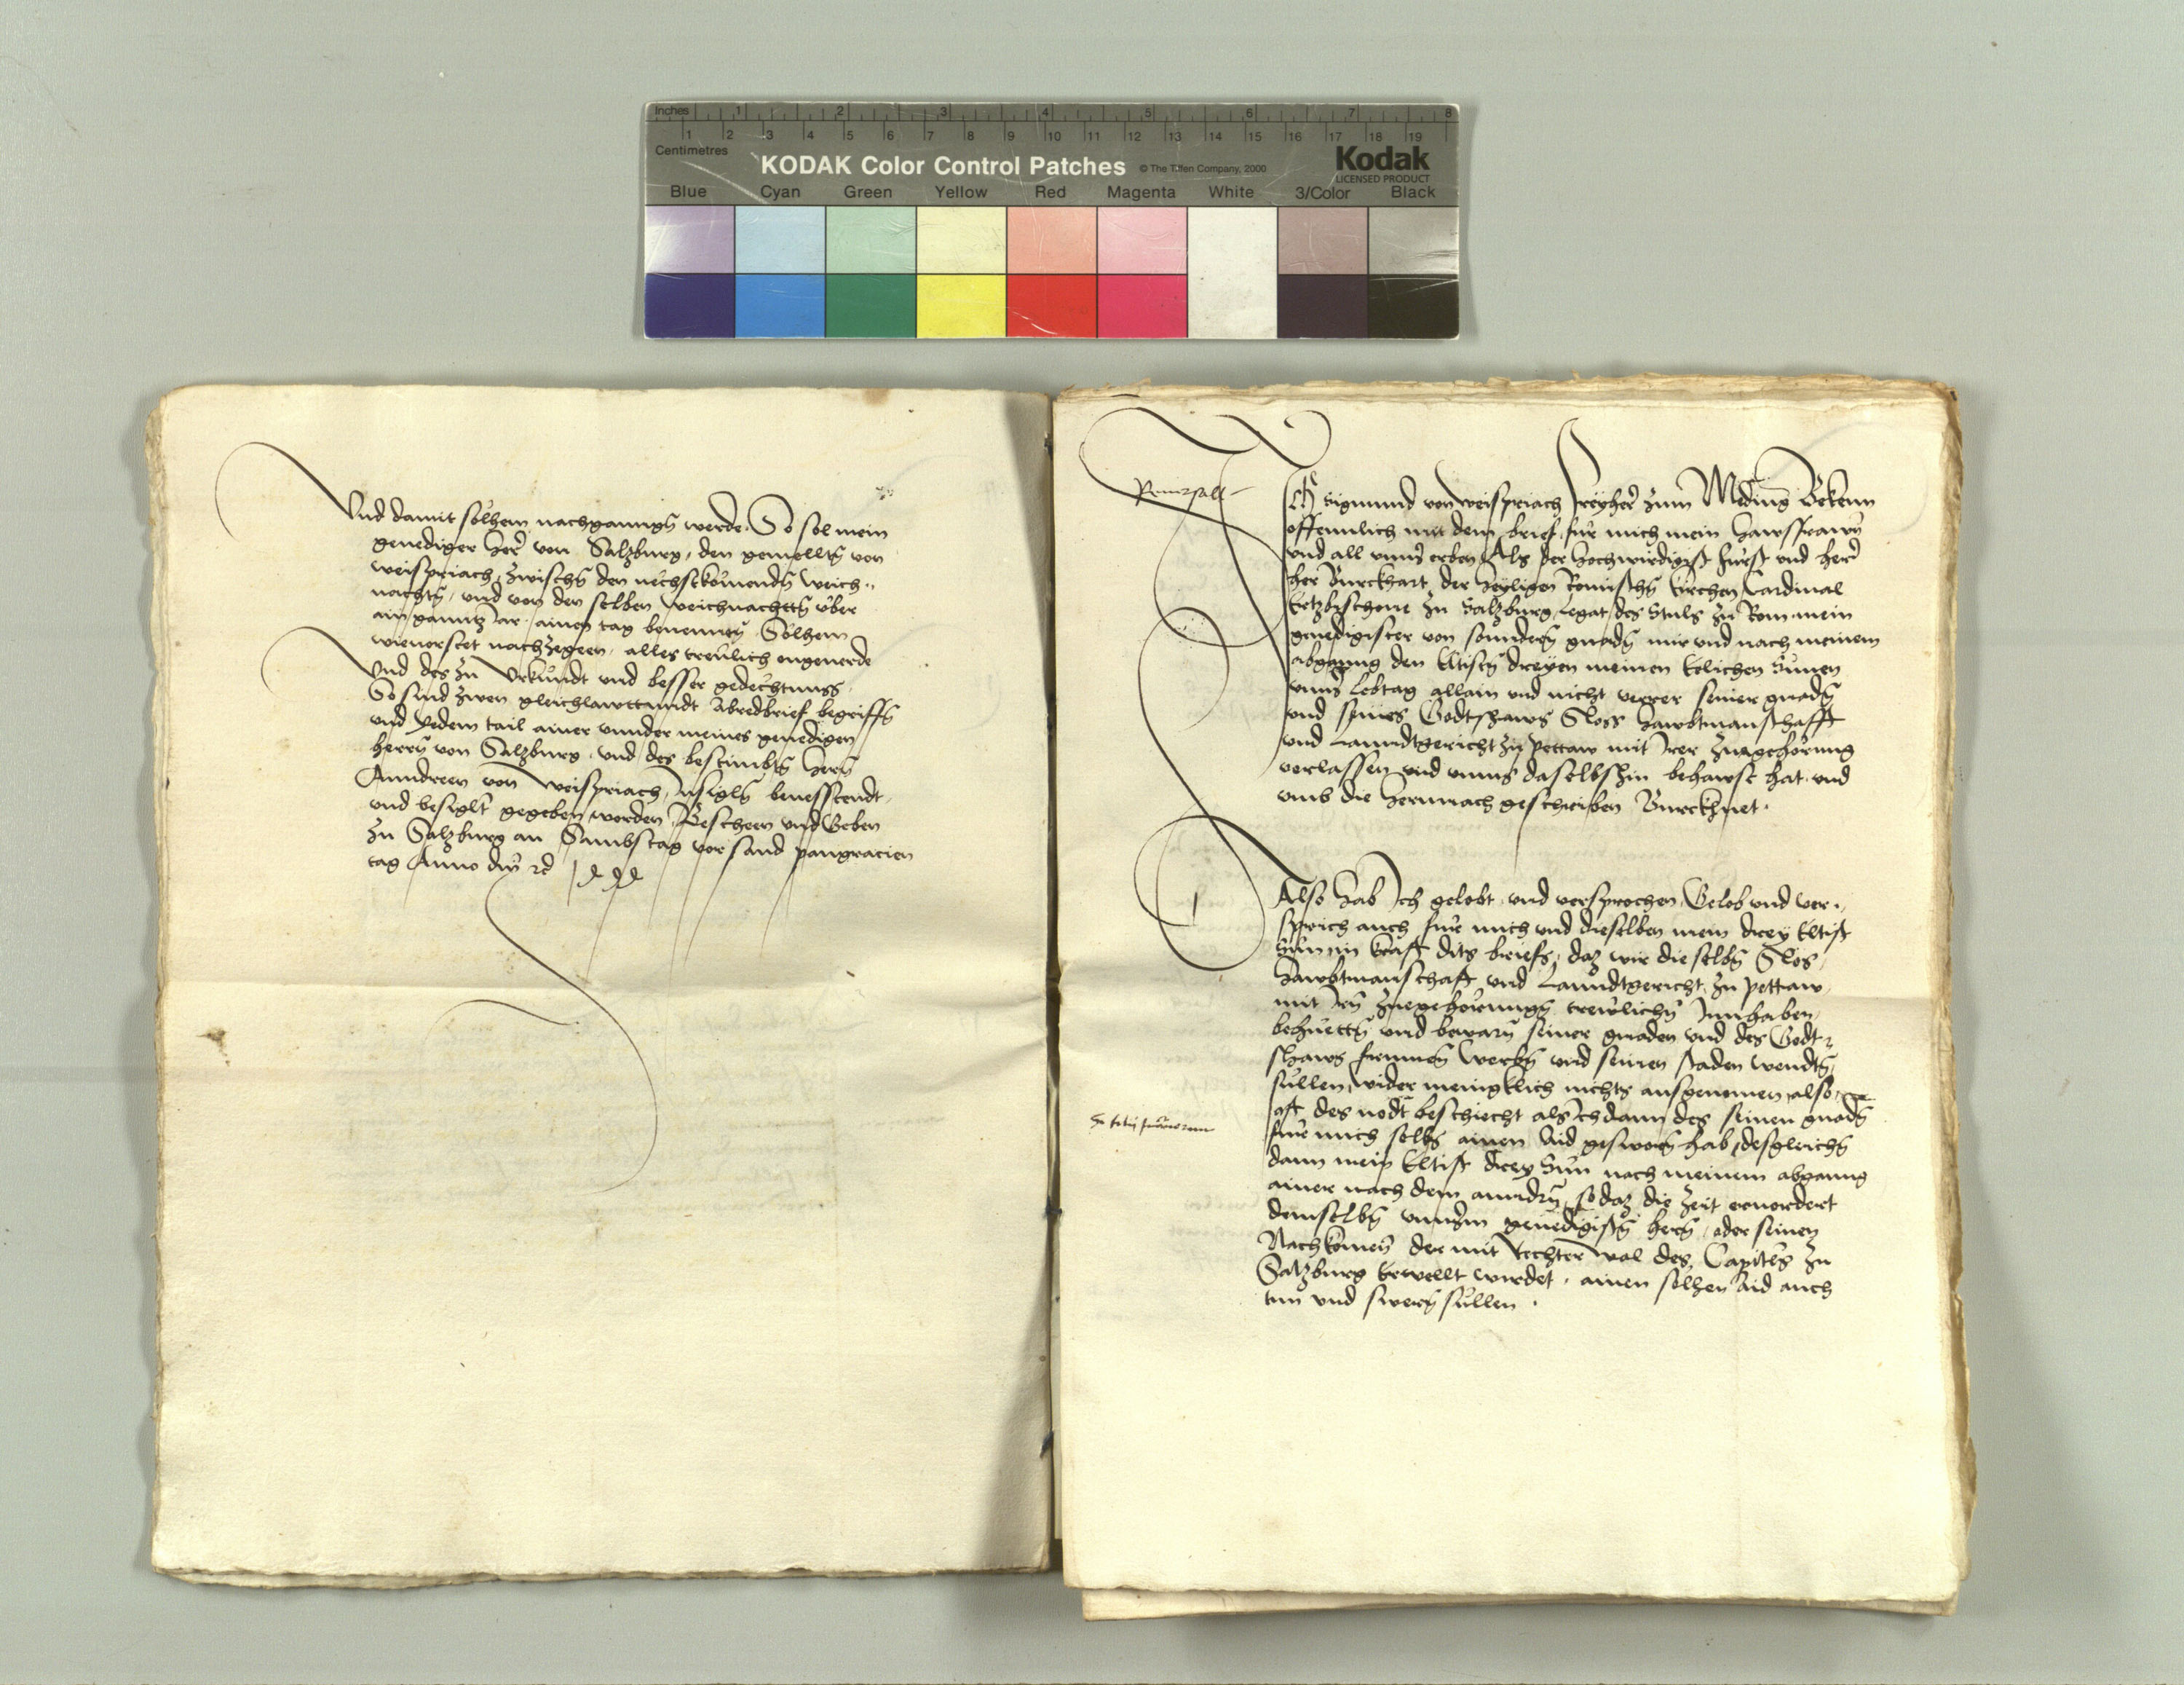 Inches 1 2 3 4 5 6 7 8
1 2 3 4 5 6 7 8 9 10 11 12 13 14 15 16 17 18 19
Centimetres
KODAK Color Control Patches © The Tiffen Company, 2000 Kodak
LICENSED PRODUCT
Blue Cyan Green Yellow Red Magenta White 3/Color Black
Vnd damit solhem nachganngen werde. So sol mein
genediger her von Salzburg, den gemellten von
weispriach, zwischen den nechstkomenden weich„
nachten, vnd von den selben weichnachtten vber
ain ganntz Jar ainen tag benennen Solhem
wieuorstet nachzegeen, alles treulich ongeuerde
Vnd des zu Vrkundt vnd besser gedechtnuss
So sind zwen gleichlawttundt Abredbrief begriffen
vnd yedem tail ainer vnnder meines genedigen
herrn von Salzburg, vnd des bestimbten herrn
Anndreen von Weispriach, Insigln beuesstendt,
vnd besiglt gegeben worden, Bescheen vnd Geben
zu Salzburg an Sambstag vor sand pangracien
tag Anno dni etc
Ich Sigmund von weispriach freyher zum Bekenn
offennlich mit dem brief, fur mich mein hawsfrawn
vnd all vnnser erben Als der hochwirdigist furst vnd herr
her Burckhart der heyligen Romischen kirchen Cardinal
Ertzbischoue zu Salzburg, Legat des Stuls zu Rom mein
genedigister von sonndern gnaden mir vnd nach meinem
abganng den Eltisten dreyen meinen Elichen Sunen
vnnser Lebtag allain vnd nicht verrer seiner gnaden
vnd seines Gotshaws Sloss Hawbtmanschafft
vnd Lanndtgericht zu Pettaw mit Irer zuegehorung
verlassen vnd vnns daselbshin behawst hat, vnd
vmb die hernnach geschriben Burckhuet.
Also hab Ich gelobt, vnd versprochen, Gelob vnd ver„
sprich auch fur mich vnd dieselben mein drey Eltist
Sun in krafft dits briefs, daz wir die selben Slos,
Hawbtmanschafft vnd Lanndtgericht, zu pettaw,
mit Irn zuegehorungen trewlichen Innhaben,
behuetten vnd bewarn seiner gnaden vnd des Godt„
shaws frummen werben vnd seinen schaden wendten
sullen, wider menigklich nichts ausgenomen, also
oft des nodt beschiecht als Ich dann des seinen gnaden
fur mich selbs ainen Aid gesworn hab, desgleichen
dann mein Eltist drey Sun nach meinem abganng
ainer nach dem anndern, so daz die zeit eruordert
demselben vnnserm genedigisten herrn, oder seinen
Nachkomen der mit Rechter wal des Capitls zu
Salzburg Erwellt wirdet, ainen solhen Aid auch
tun vnd swern sullen.